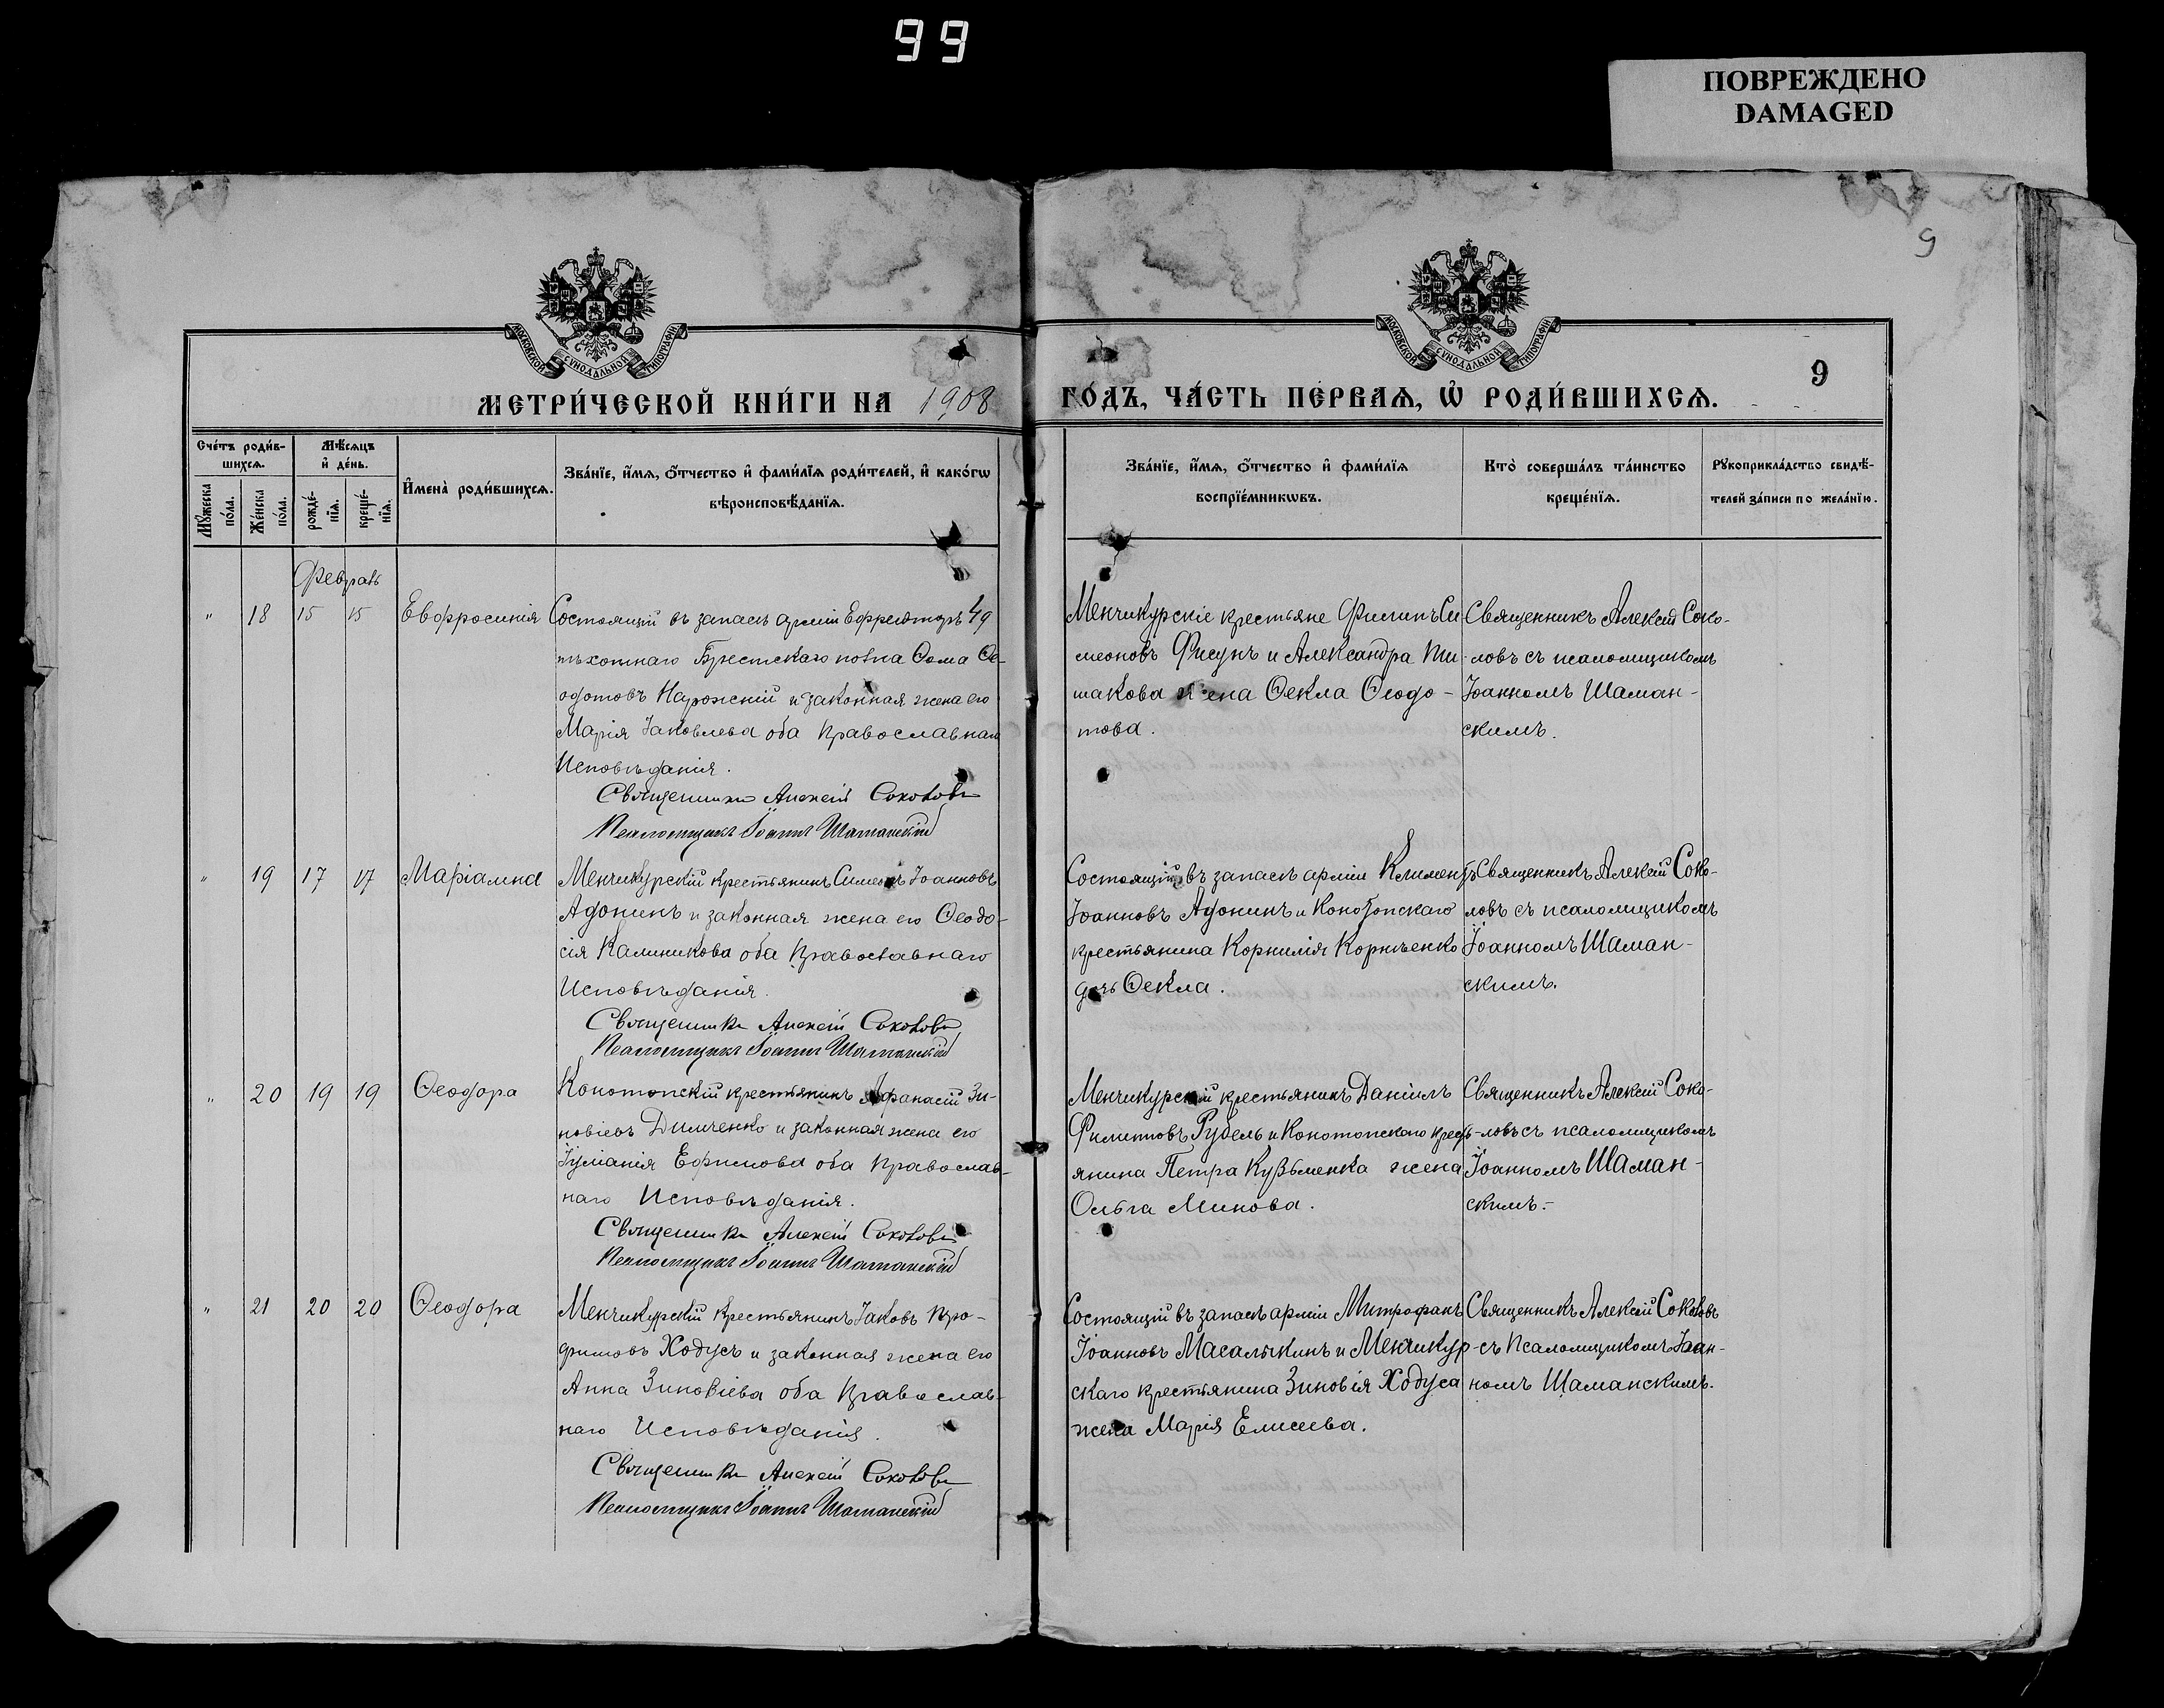 99
ПОВРЕЖДЕНО
DAMAGED
9
МОСКОВСКОЙ СѴНОДАЛЬНОЙ ТИПОГРАФІИ
МОСКОВСКОЙ СѴНОДАЛЬНОЙ ТИПОГРАФІИ
9
МЕТРИ́ЧЕСКОЙ КНИ́ГИ НА 1908 ГО́ДЪ, ЧА́СТЬ ПЕ́РВАѦ, Ѡ҆ РОДИ́ВШИХСѦ.
Сче́тъ роди́в-
шихсѧ.
Мѣ́сѧцъ
и҆ де́нь.
Мꙋ́жеска
по́ла.
Же́нска
по́ла.
рожде́-
нїѧ.
креще́-
нїѧ.
И҆мена̀ роди́вшихсѧ.
Зва́нїе, и҆́мѧ, ѻ҆́тчество и҆ фами́лїѧ роди́телей, и҆ како́гѡ
вѣроисповѣ́данїѧ.
Зва́нїе, и҆́мѧ, ѻ҆́тчество и҆ фами́лїѧ
воспрїе́мникѡвъ.
Кто̀ соверша́лъ та́инство
креще́нїѧ.
Рꙋкоприкла́дство свидѣ́-
телей за́писи по жела́нїю.
Февраль
" 18 15 15 Евфросинія
Состоящій въ запасѣ арміи Ефрейторъ 49
пѣхотнаго Брестскаго полка Ѳома Ѳе-
одотовъ Нарожскій и законная жена его
Марія Іаковлева оба Православнаго
Исповѣданія.
Священникъ Алексій Соколовъ
Псаломщикъ Іоаннъ Шаманскій
Менчикурскіе крестьяне Филипъ Си
меоновъ Фисунъ и Александра
шакова жена Ѳекла Ѳеодо-
това.
Священникъ Алексій Соко-
ловъ съ псаломщикомъ
Іоанномъ Шаман-
скимъ.
" 19 17 17 Маріамна
Менчикурскій крестьянинъ Симеонъ Іоанновъ
Адонинъ и законная жена его Ѳеодо-
сія Калиникова оба Православнаго
Исповѣданія.
Священникъ Алексій Соколовъ
Псаломщикъ Іоаннъ Шаманскій
Состоящій въ запасѣ арміи Климентъ
Іоанновъ Адонинъ и Конотопскаго
крестьянина Корнилія Корнѣенко
дочь Ѳекла.
Священникъ Алексій Соко-
ловъ съ псаломщикомъ
Іоанномъ Шаман-
скимъ.
" 20 19 19 Ѳеодора
Конотопскій крестьянинъ Афанасій Зи-
новіевъ Димченко и законная жена его
Іуліанія Ефимова оба Православ-
наго Исповѣданія.
Священникъ Алексій Соколовъ
Псаломщикъ Іоаннъ Шаманскій
Менчикурскій крестьянинъ Даніилъ
Филиповъ Рудель и Конотопскаго кресть-
янина Петра Кузьменка жена
Ольга Минова.
Священникъ Алексій Соко-
ловъ съ псаломщикомъ
Іоанномъ Шаман-
скимъ.-
" 21 20 20 Ѳеодора
Менчикурскій Крестьянинъ Іаковъ Про-
фимовъ Ходусъ и законная жена его
Анна Зиновіева оба Православ-
наго Исповѣданія.
Священникъ Алексій Соколовъ
Псаломщикъ Іоаннъ Шаманскій
Состоящій въ запасѣ арміи Митрофанъ
Іоанновъ Масалыкинъ и Менчикур-
скаго крестьянина Зиновія Ходуса
жена Марія Елисеева.
Священникъ Алексій Соколовъ
съ Псаломщикомъ Іоан-
номъ Шаманскимъ.